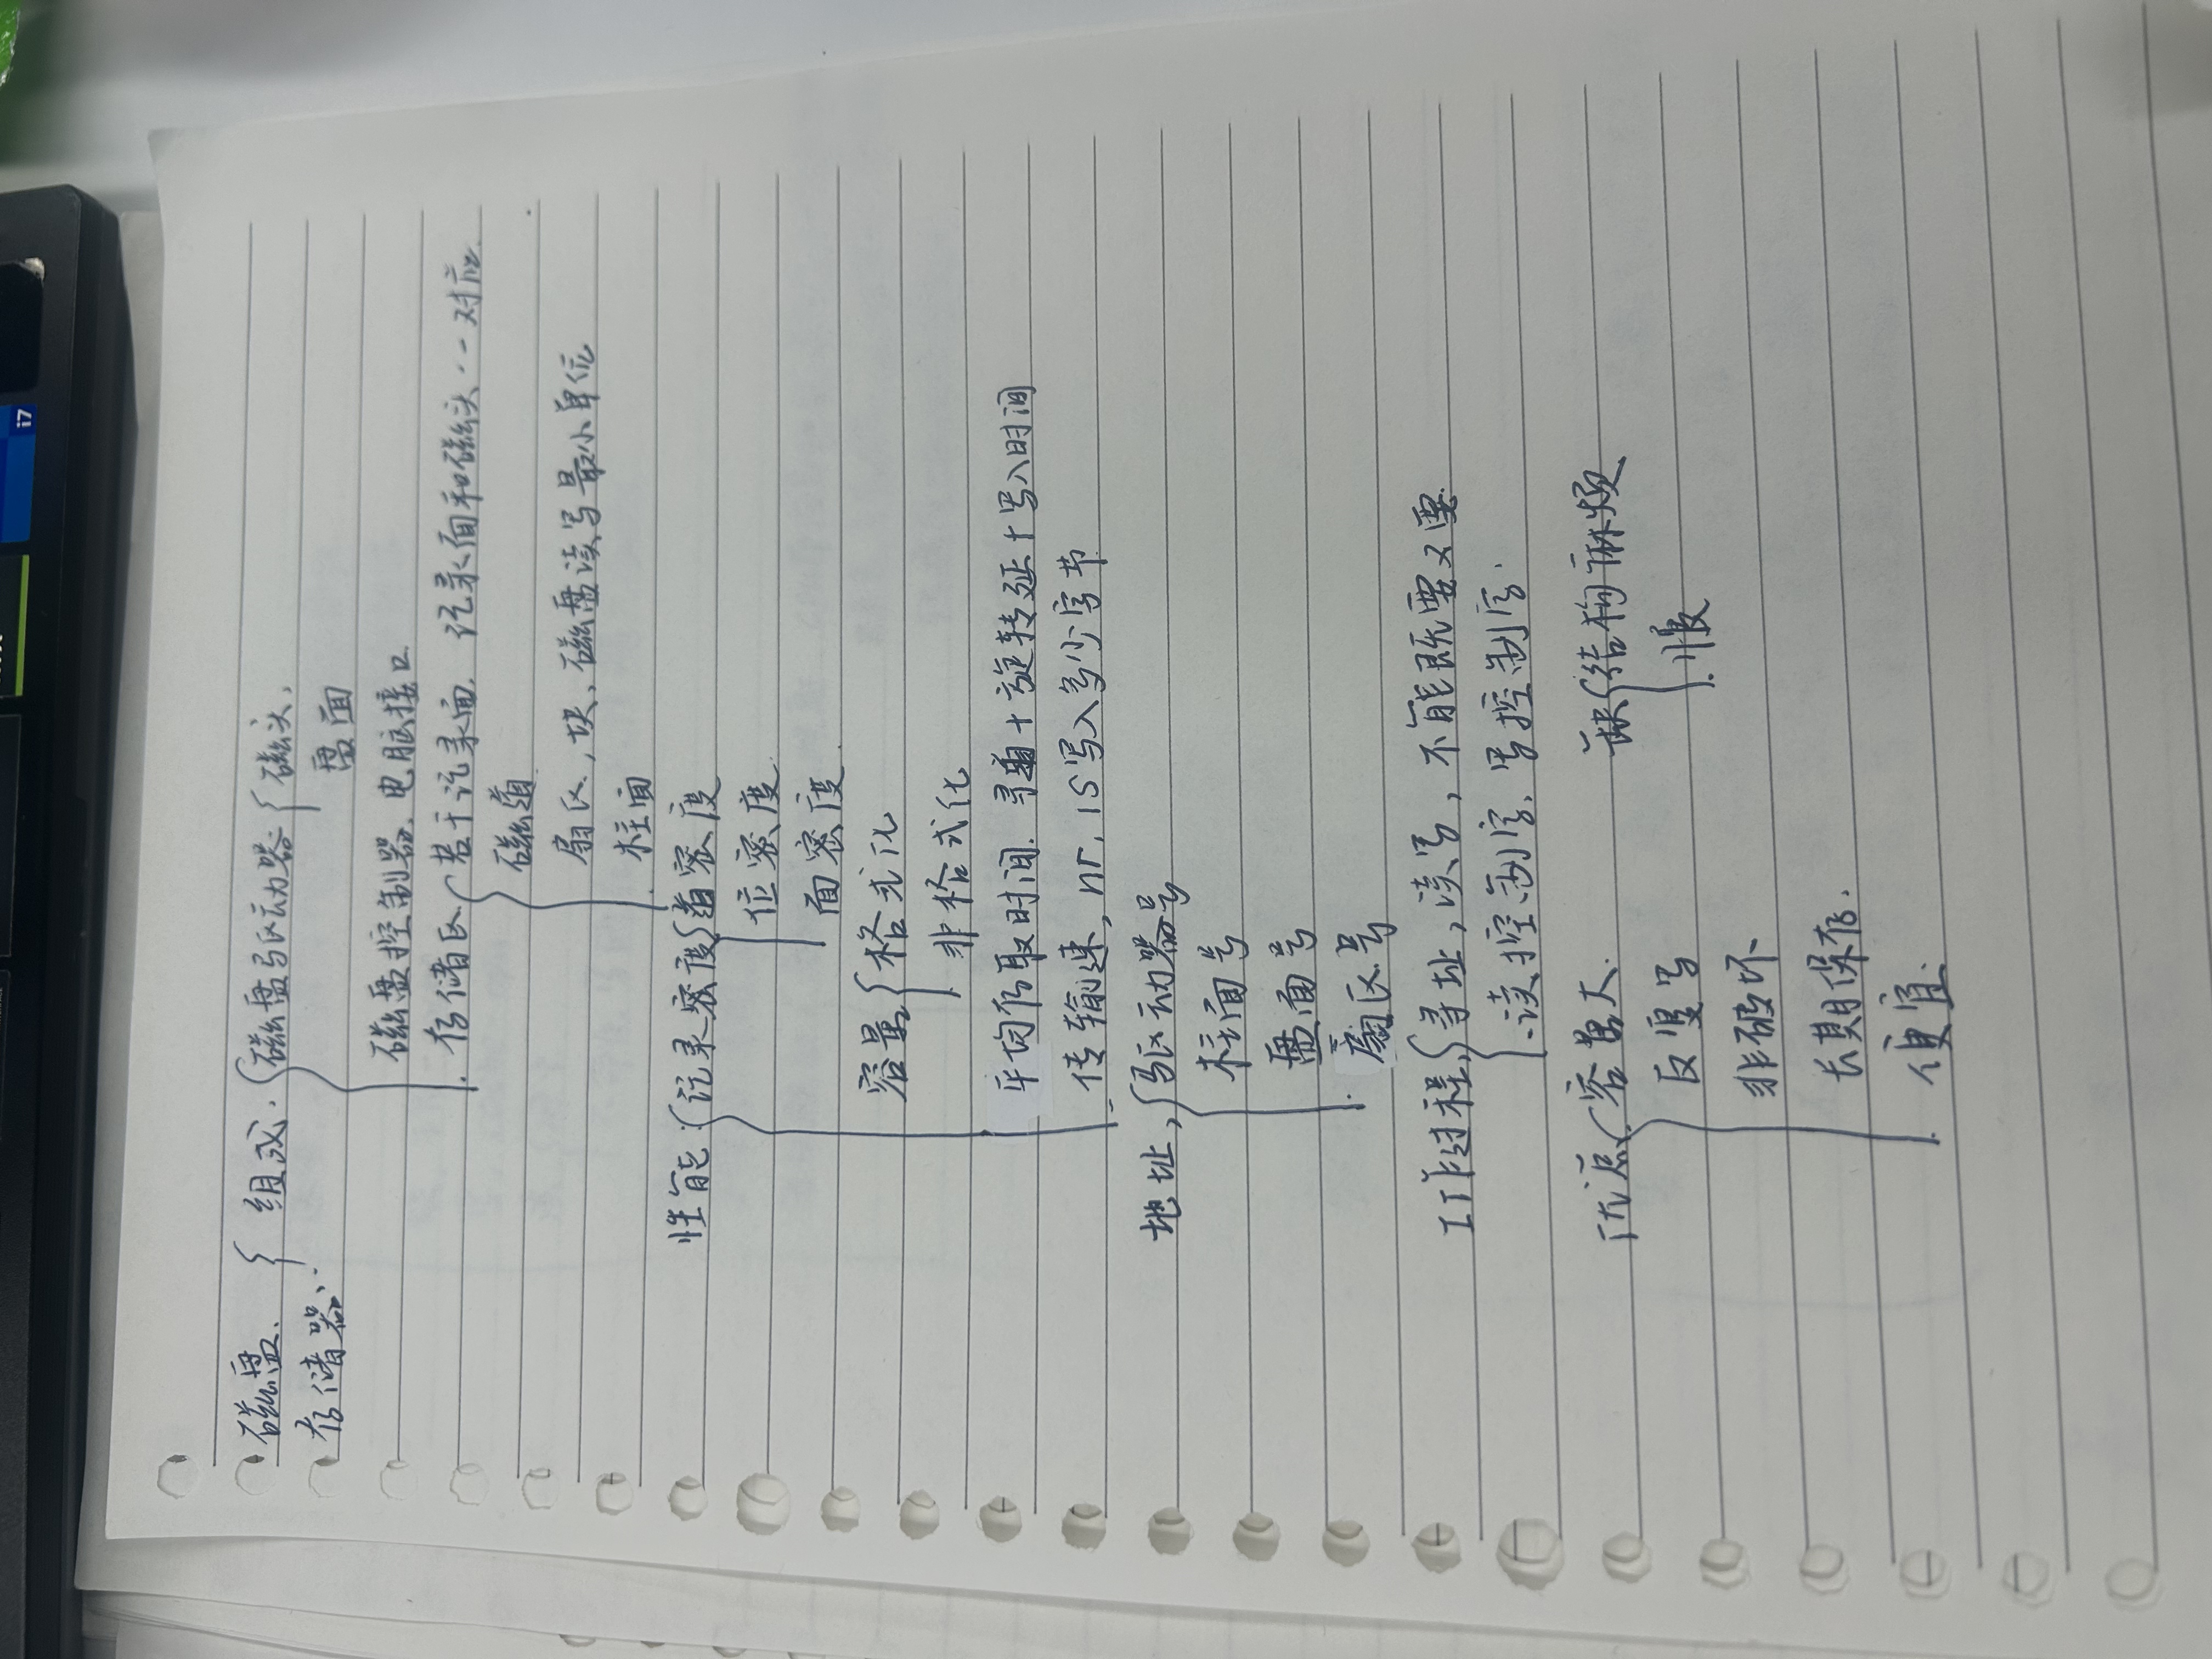 i7
磁盘. 组成. 磁盘驱动器 磁头,
存储器. 盘面
磁盘控制器. 电脑接口
存储区. 若干记录面. 记录面和磁头一一对应.
磁道
扇区, 块, 磁盘读写最小单位
柱面
性能: 记录密度 道密度
位密度.
面密度.
容量 格式化
非格式化
平均存取时间. 寻道+旋转延+写入时间
传输速, nr, 1S写入多少字节
地址, 驱动器号
柱面号
盘面号
扇区号
工作过程, 寻址, 读写, 不能既要又要.
读控制字, 写控制字.
优点 容量大. 缺 结构麻烦
反复写 慢
非破坏
长期保存.
便宜.